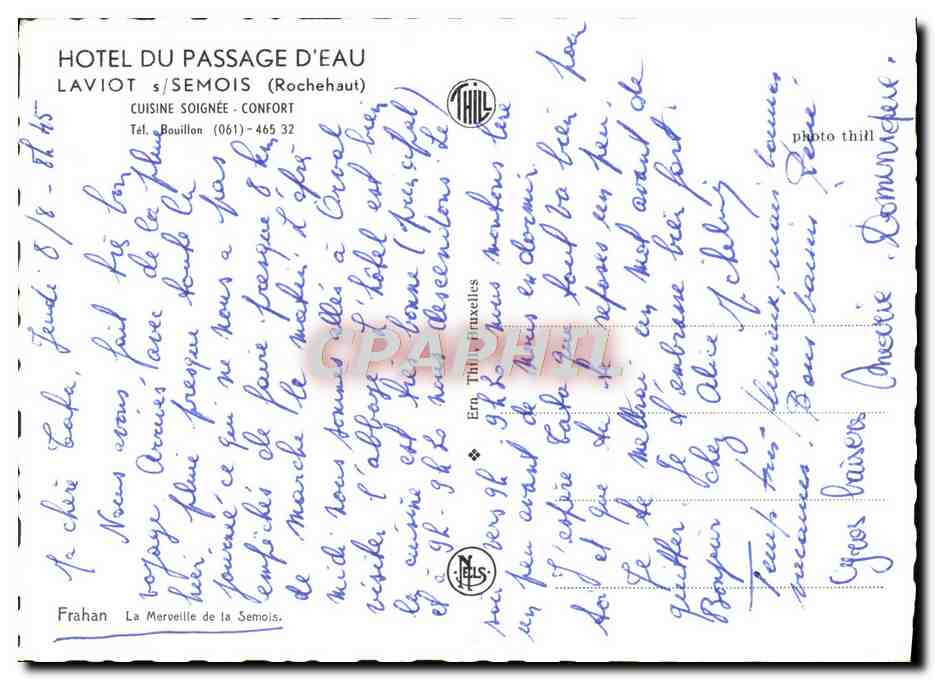 HOTEL DU PASSAGE D'EAU
LAVIOT s/SEMOIS (Rochehaut)
CUISINE SOIGNÉE - CONFORT
Tél. Bouillon (061) - 465 32
THILL
photo thill
Ern. Thill, Bruxelles
NELS
Frahan La Merveille de la Semois.
CPAPHIL
Jeudi 8/8 - 8h45
Ma chère tata,
Nous avons fait très bon
voyage. Arrivés avec de la pluie
hier, pluie presque toute la
journée ce qui ne nous a pas
empêchés de faire presque 8 km
de marche le matin. L'après
midi nous sommes allés à Orval
visiter l'abbaye. L'hôtel est bien
la cuisine est très bonne (principal)
et à 9h - 9h20 nous descendons. Le
soir vers 9h - 9h20 nous montons lire
un peu avant de nous endormir
J'espère tata que tout va bien pour
toi et que tu te reposes un peu
Je te mettrai un mot avant de
quitter. Je t'embrasse bien fort
Bonjour chez Alice Michelin
Temps très pluvieux, mais bonnes
vacances. Bons baisers René
Gros baisers Marie. Dominique.